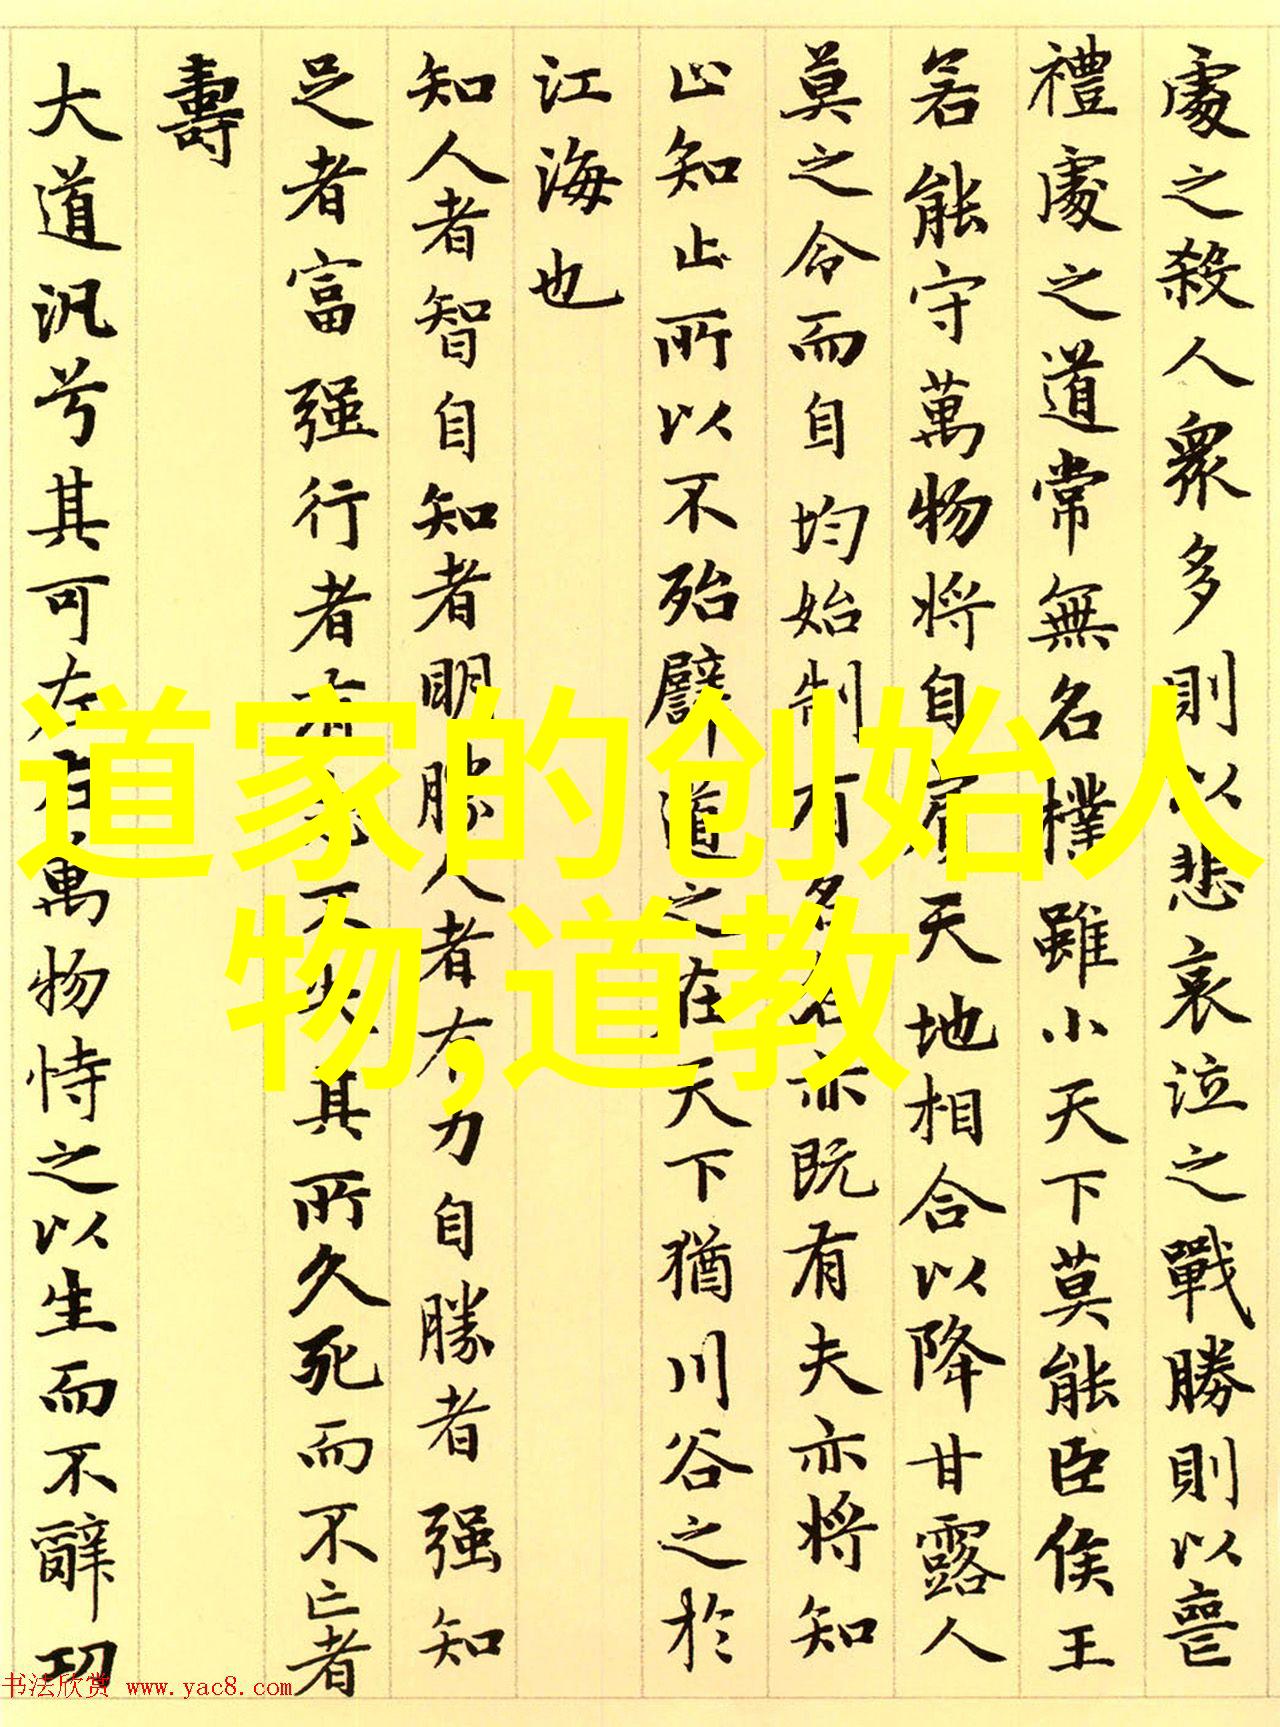 處之殺人衆多則以悲哀泣之戰勝則以喪
禮處之道常無名樸雖小天下莫能臣侯王
若能守萬物將自賓天地相合以降甘露人
莫之令而自均始制有名名亦既有夫亦將知
止知止所以不殆譬道之在天下猶川谷之於
江海也
知人者智自知者明勝人者有力自勝者强知
足者富强行者有志不失其所久死而不亡者
壽
大道汎兮其可左右萬物恃之以生而不辭功
道家的创始人
物,道教
书法欣赏 www.yac8.com